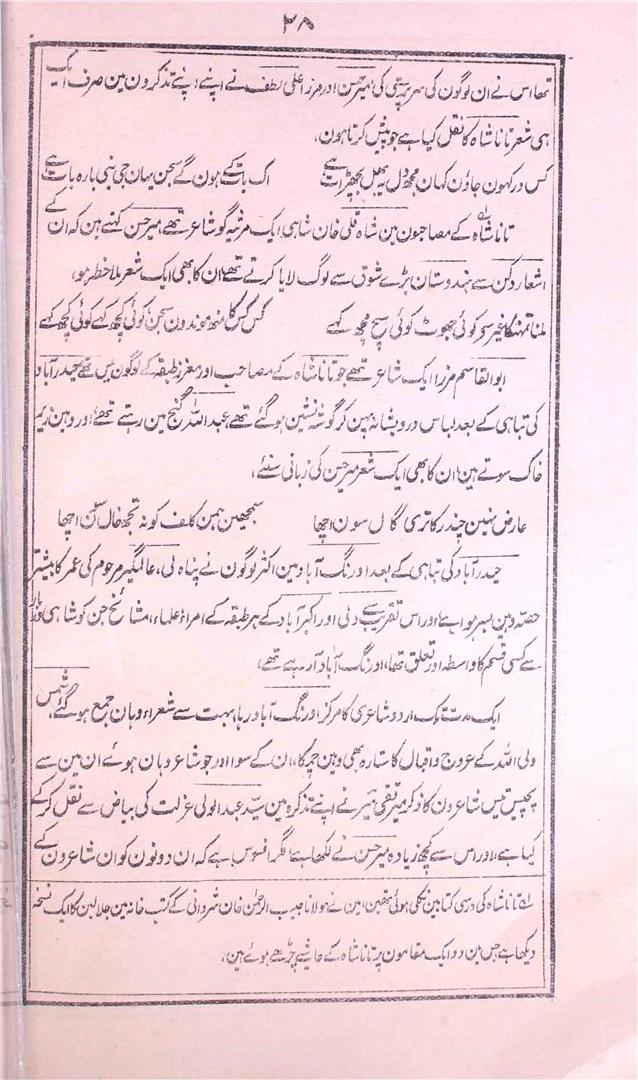 ۲۸
تھا، اس نے ان لوگون کی سرپرستی کی، میر حسن اور مرزا علی لطف نے اپنے اپنے تذکرون مین صرف ایک
ہی شعر تانا شاہ کا نقل کیا ہے جو پیش کرتا ہون،
کس در کہون جاؤن کہان مجھ دل پہ بھل بچھراٹ ہے اک بات کے ہون گے سجن یہان جی ہی بارہ باٹ ہے
تانا شاہ کے مصاحبون مین شاہ قلی خان شاہی ایک مرثیہ گو شاعر تھے، میر حسن کہتے ہین کہ ان کے
اشعار دکن سے ہندوستان بڑے شوق سے لوگ لایا کرتے تھے، ان کا بھی ایک شعر ملاخطہ ہو،
ملنا تمہنکا غیر سے کوئی جھوٹ کوئی سچ مچ کہے کس کس کا منھ موندون سجن کوئی کچھ کہے کوئی کچھ کہے
ابو القاسم مرزا ایک شاعر تھے جو تانا شاہ کے مصاحب اور معزز طبقہ کے لوگون مین تھے حیدر آباد
کی تباہی کے بعد لباس درویشانہ پہن کر گوشہ نشین ہو گئے تھے، عبد اللہ گنج مین رہتے تھے، اور وہین زیر
خاک سوتے ہین، ان کا بھی ایک شعر میر حسن کی زبانی سنئے،
عارض نہین چندر کا تری گال سون اچھا سمجھین ہمن کلف کو نہ تجھ خال سن اچھا
حیدر آباد کی تباہی کے بعد اورنگ آباد مین اکثر لوگون نے پناہ لی، عالمگیر مرحوم کی عمر کا بیشتر
حصہ وہین بسر ہوا ہے، اور اس تقریب سے دلی اور اکبر آباد کے ہر طبقہ کے امراء، علماء، مشائخ جن کو شاہی دربار
سے کسی قسم کا واسطہ اور تعلق تھا، اورنگ آباد آرہے تھے،
ایک مدت تک اردو شاعری کا مرکز اورنگ آباد رہا، بہت سے شعراء وہان جمع ہو گئے، شمس
ولی اللہ کے عروج و اقبال کا ستارہ بھی وہین چمکا، ان کے سوا اور جو شاعر وہان ہوئے ان مین سے
پچیس تیس شاعرون کا ذکر میر تقی میر نے اپنے تذکرہ مین سید عبد الولی عزلت کی بیاض سے نقل کر کے
کیا ہے، اور اس سے کچھ زیادہ میر حسن نے لکھا ہے، مگر افسوس ہے کہ ان دونون کو ان شاعرون کے
لہ تانا شاہ کی درسی کتابین نکلی ہوئی تھین، مین نے مولانا حبیب الرحمٰن خان شروانی کے کتب خانہ مین جلالین کا ایک نسخہ
دیکھا ہے جس مین دو ایک مقامون پر تانا شاہ کے حاشیے چڑھے ہوئے ہین،